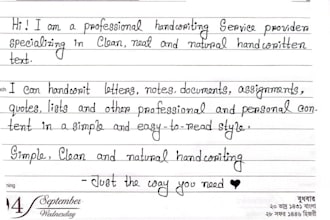 Hi! I am a professional handwriting Service provider
specializing in Clean, neat and natural handwritten
text.
I can handwrit letters, notes. documents, assignments,
quotes, lists and other professional and personal con-
tent in a simple and easy-to-read style.
Simple, Clean and natural handwriting
- Just the way you need ♥
ning
04 September
Wednesday
বুধবার
২০ ভাদ্র ১৪৩১ বাংলা
২৮ সফর ১৪৪৬ হিজরি